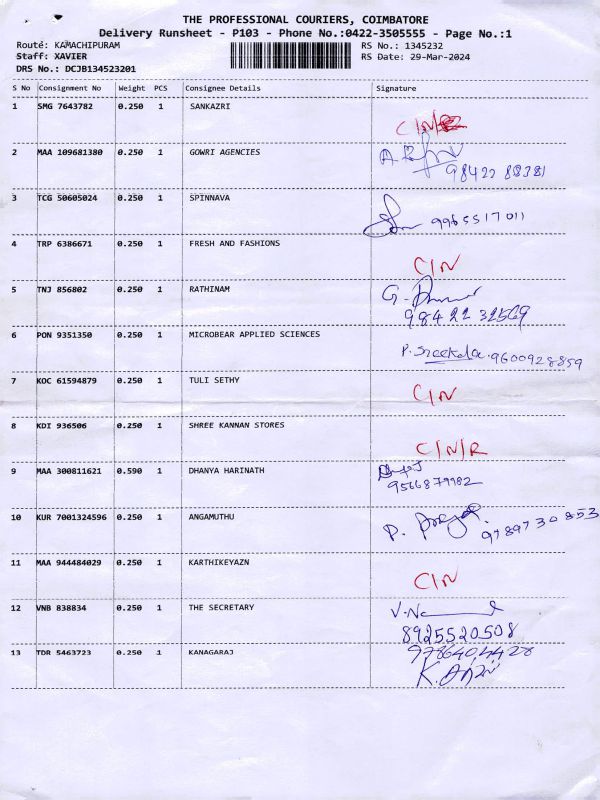 THE PROFESSIONAL COURIERS, COIMBATORE
Delivery Runsheet - P103 - Phone No.:0422-3505555 - Page No.:1
Route: KAMACHIPURAM RS No.: 1345232
Staff: XAVIER RS Date: 29-Mar-2024
DRS No.: DCJB134523201
S No Consignment No Weight PCS Consignee Details Signature
1 SMG 7643782 0.250 1 SANKAZRI
C/N/
2 MAA 109681380 0.250 1 GOWRI AGENCIES
98422 88381
3 TCG 50605024 0.250 1 SPINNAVA
9965517011
4 TRP 6386671 0.250 1 FRESH AND FASHIONS
C/N
5 TNJ 856802 0.250 1 RATHINAM
G.
98422 32569
6 PON 9351350 0.250 1 MICROBEAR APPLIED SCIENCES
P. Sreekala. 9600928859
7 KOC 61594879 0.250 1 TULI SETHY
C/N
8 KDI 936506 0.250 1 SHREE KANNAN STORES
C/N/R
9 MAA 300811621 0.590 1 DHANYA HARINATH
9566879982
10 KUR 7001324596 0.250 1 ANGAMUTHU
P. 9789730853
11 MAA 944484029 0.250 1 KARTHIKEYAZN
C/N
12 VNB 838834 0.250 1 THE SECRETARY
8925520508
13 TDR 5463723 0.250 1 KANAGARAJ
9786404428